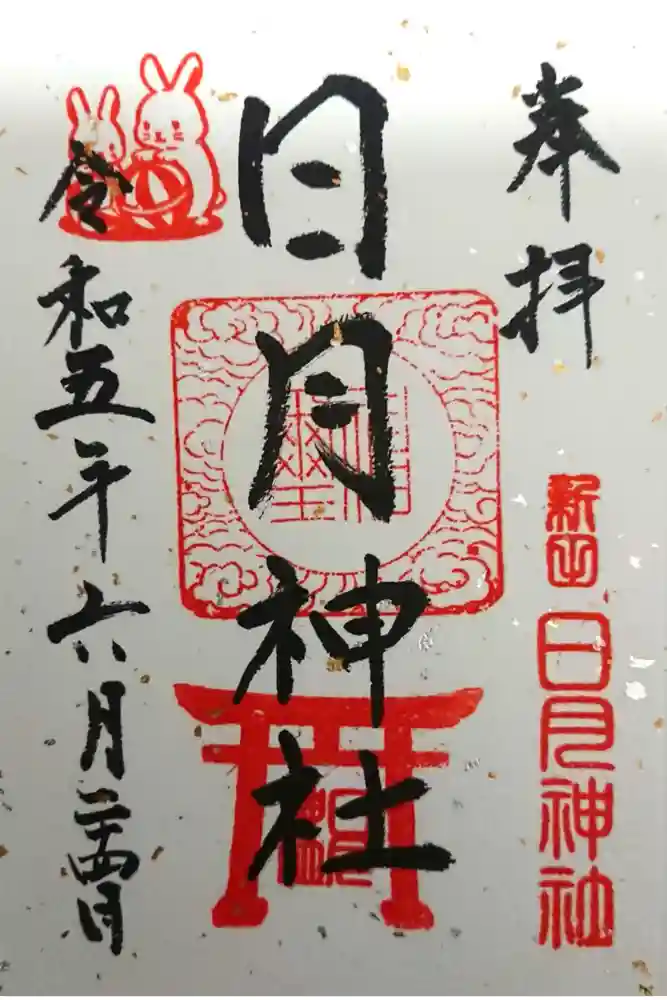 奉拝
新田
日月神社
日月神社
令和五年六月二十四日